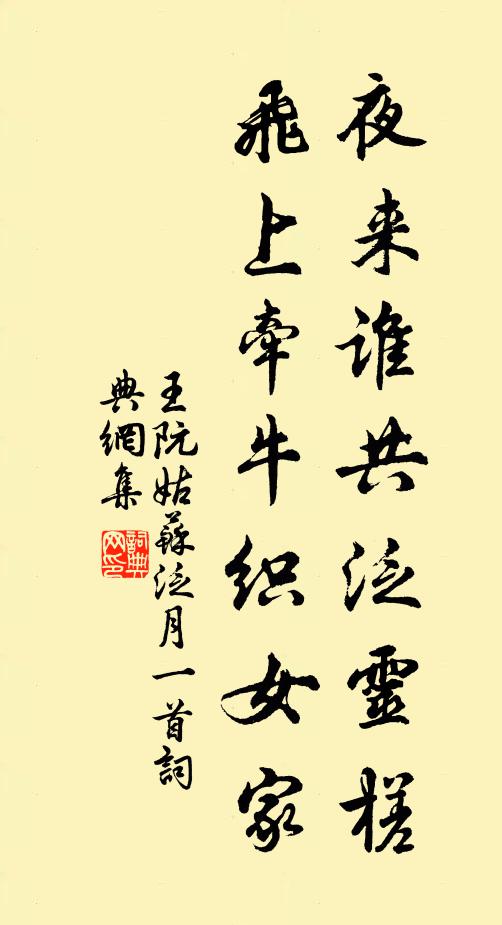 夜来谁共泛靈槎
飛上牽牛织女家
王阮姑蘇泛月一首詞
典網集
詞典
网印